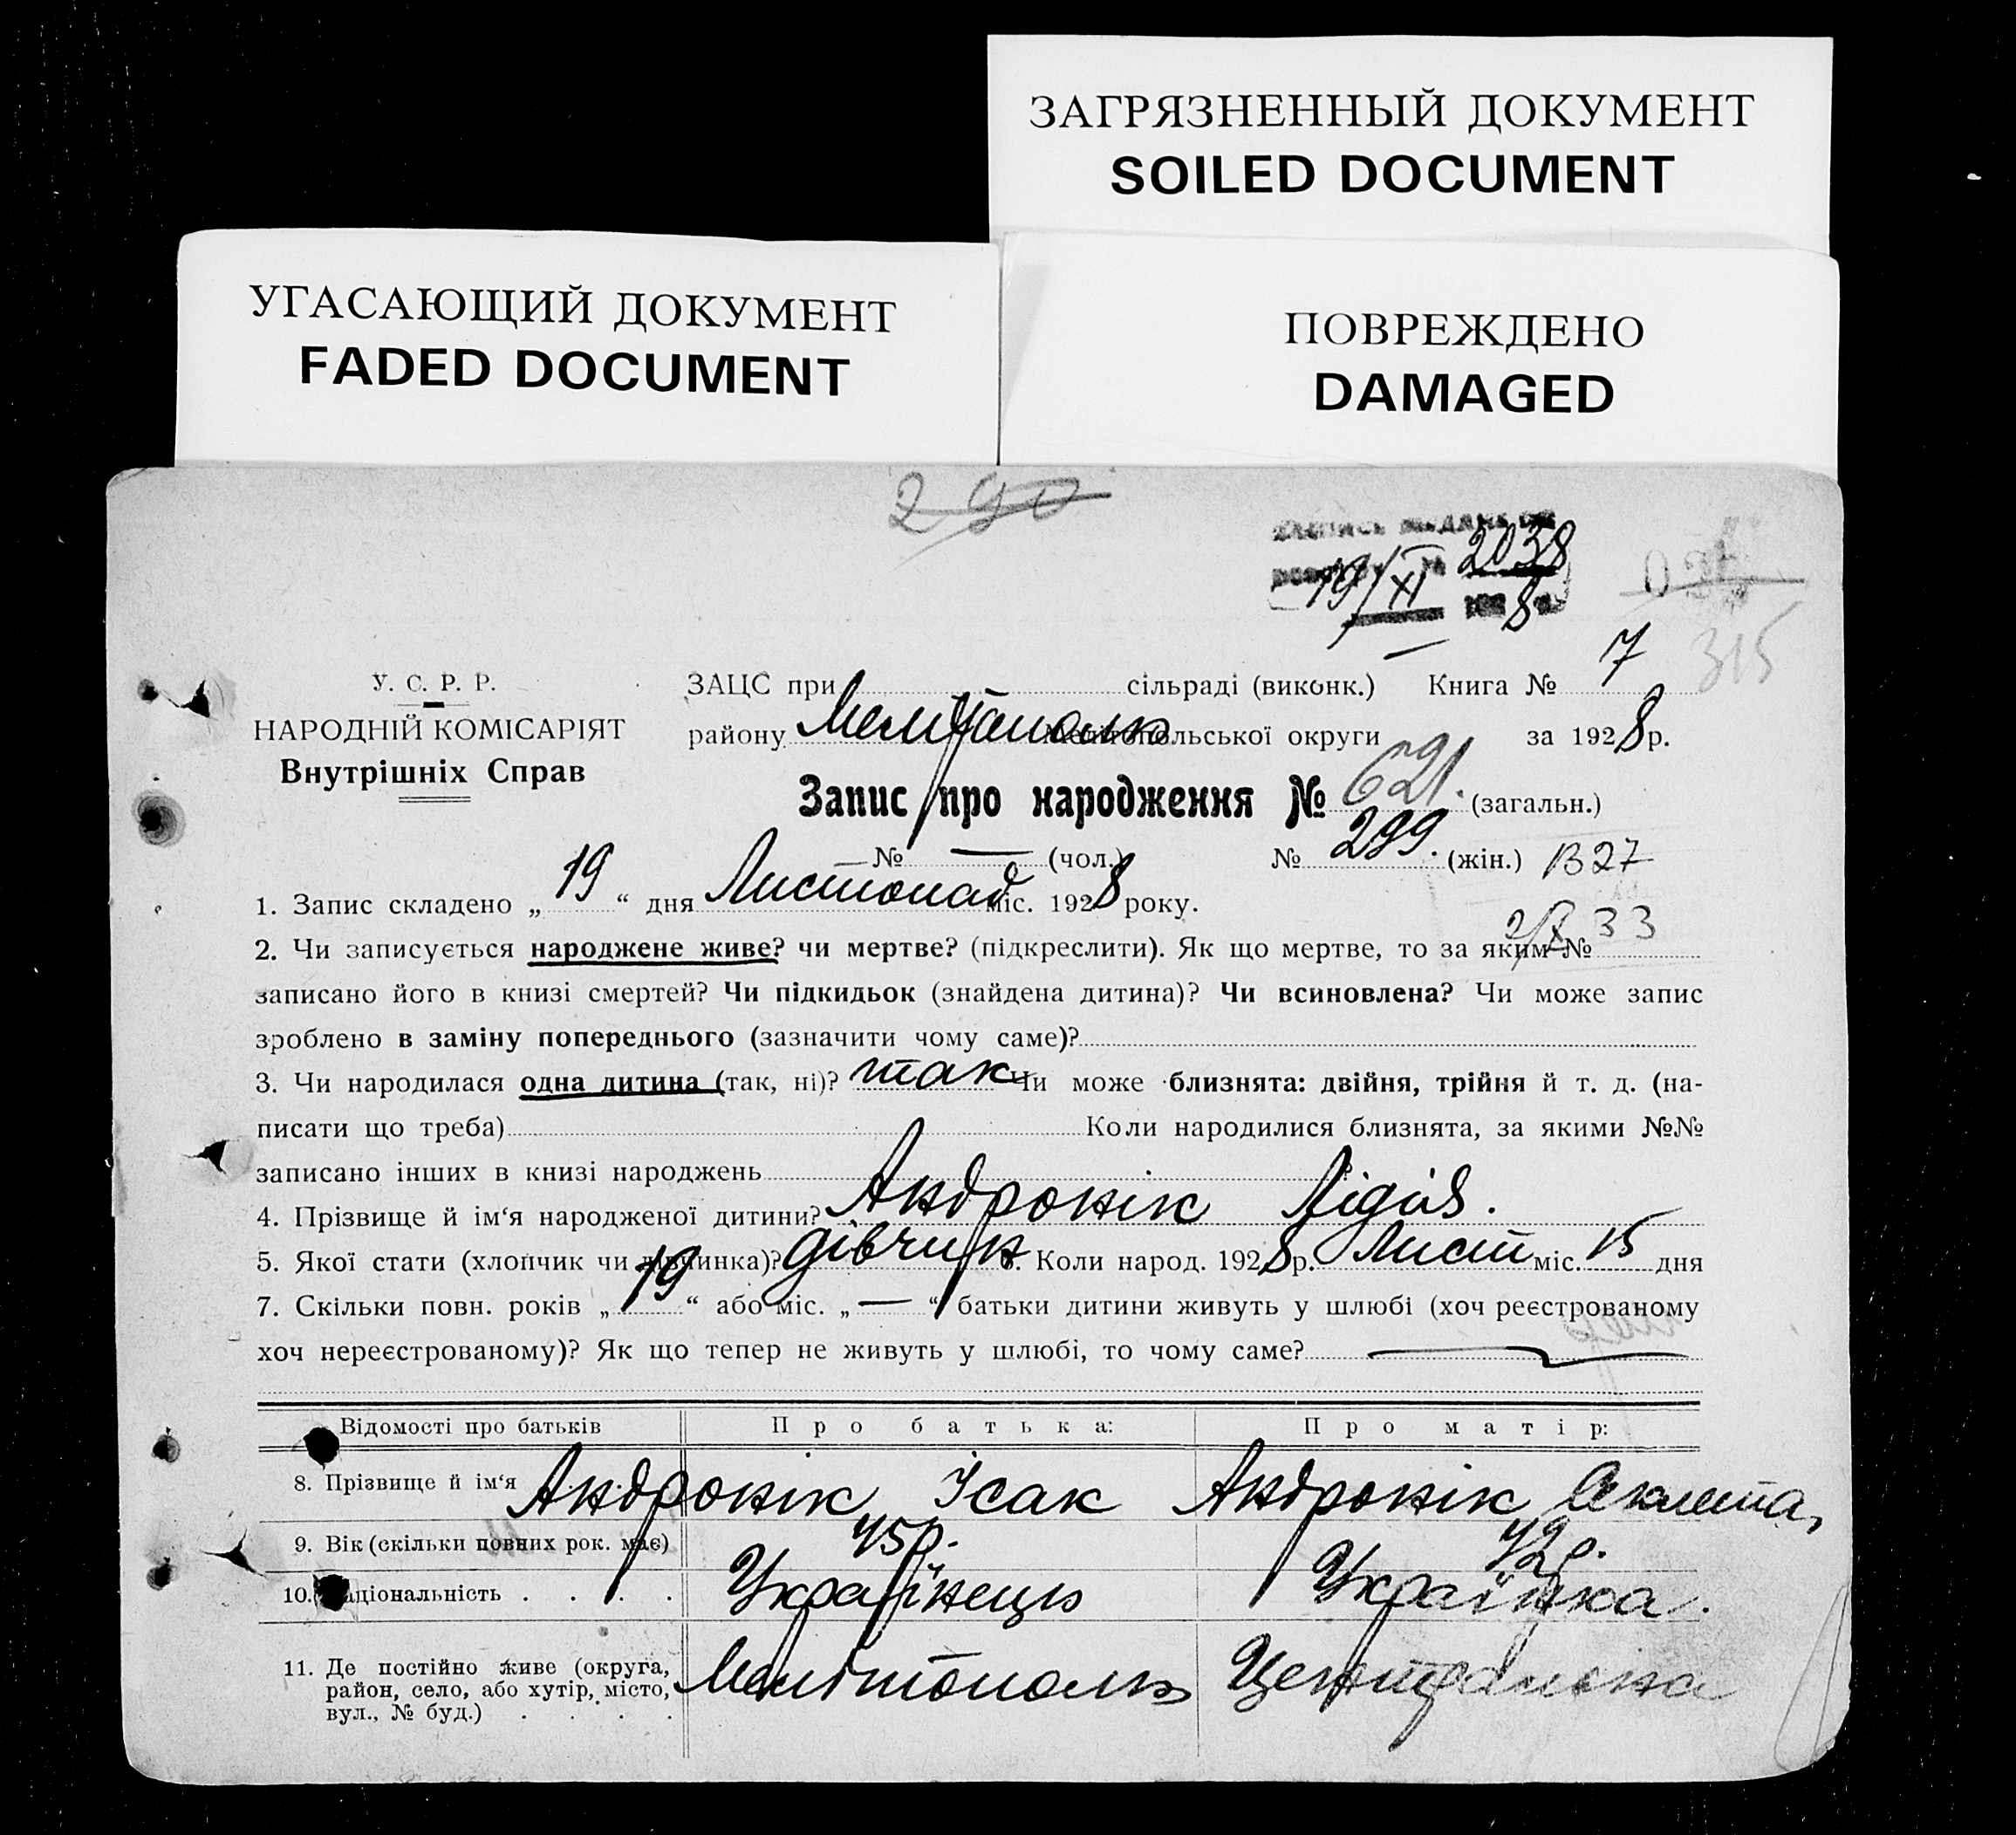 ЗАГРЯЗНЕННЫЙ ДОКУМЕНТ
SOILED DOCUMENT
УГАСАЮЩИЙ ДОКУМЕНТ
FADED DOCUMENT
ПОВРЕЖДЕНО
DAMAGED
290
2038
19/XI 8
315
У. С. Р. Р.
НАРОДНІЙ КОМІСАРІЯТ
Внутрішніх Справ
ЗАЦС при сільраді (виконк.) Книга № 7
району Мелітополь Мелітопольської округи за 1928 р.
Запис про народження № 621. (загальн.)
№ — (чол.) № 299. (жін.) 1327
1. Запис складено „ 19 “ дня Листопад міс. 1928 року.
33
2. Чи записується народжене живе? чи мертве? (підкреслити). Як що мертве, то за яким №
записано його в книзі смертей? Чи підкидьок (знайдена дитина)? Чи всиновлена? Чи може запис
зроблено в заміну попереднього (зазначити чому саме)?
3. Чи народилася одна дитина (так, ні)? так Чи може близнята: двійня, трійня й т. д. (на-
писати що треба) Коли народилися близнята, за якими №№
записано інших в книзі народжень
4. Прізвище й ім‘я народженої дитини? Андронік Лідія.
5. Якої стати (хлопчик чи дівчинка)? дівчин 6. Коли народ. 1928 р. Лист міс. 15 дня
7. Скільки повн. років „ 19 “ або міс. „ — “ батьки дитини живуть у шлюбі (хоч реєстрованому
хоч нереєстрованому)? Як що тепер не живуть у шлюбі, то чому саме? —
Відомості про батьків Про батька: Про матір:
8. Прізвище й ім‘я Андронік Ісак Андронік Секлета,
9. Вік (скільки повних рок. має) 45р. 42р.
10. Національність . . . . Українець Українка.
11. Де постійно живе (округа, Мелітополь Центральна
район, село, або хутір, місто,
вул., № буд.) . . . .